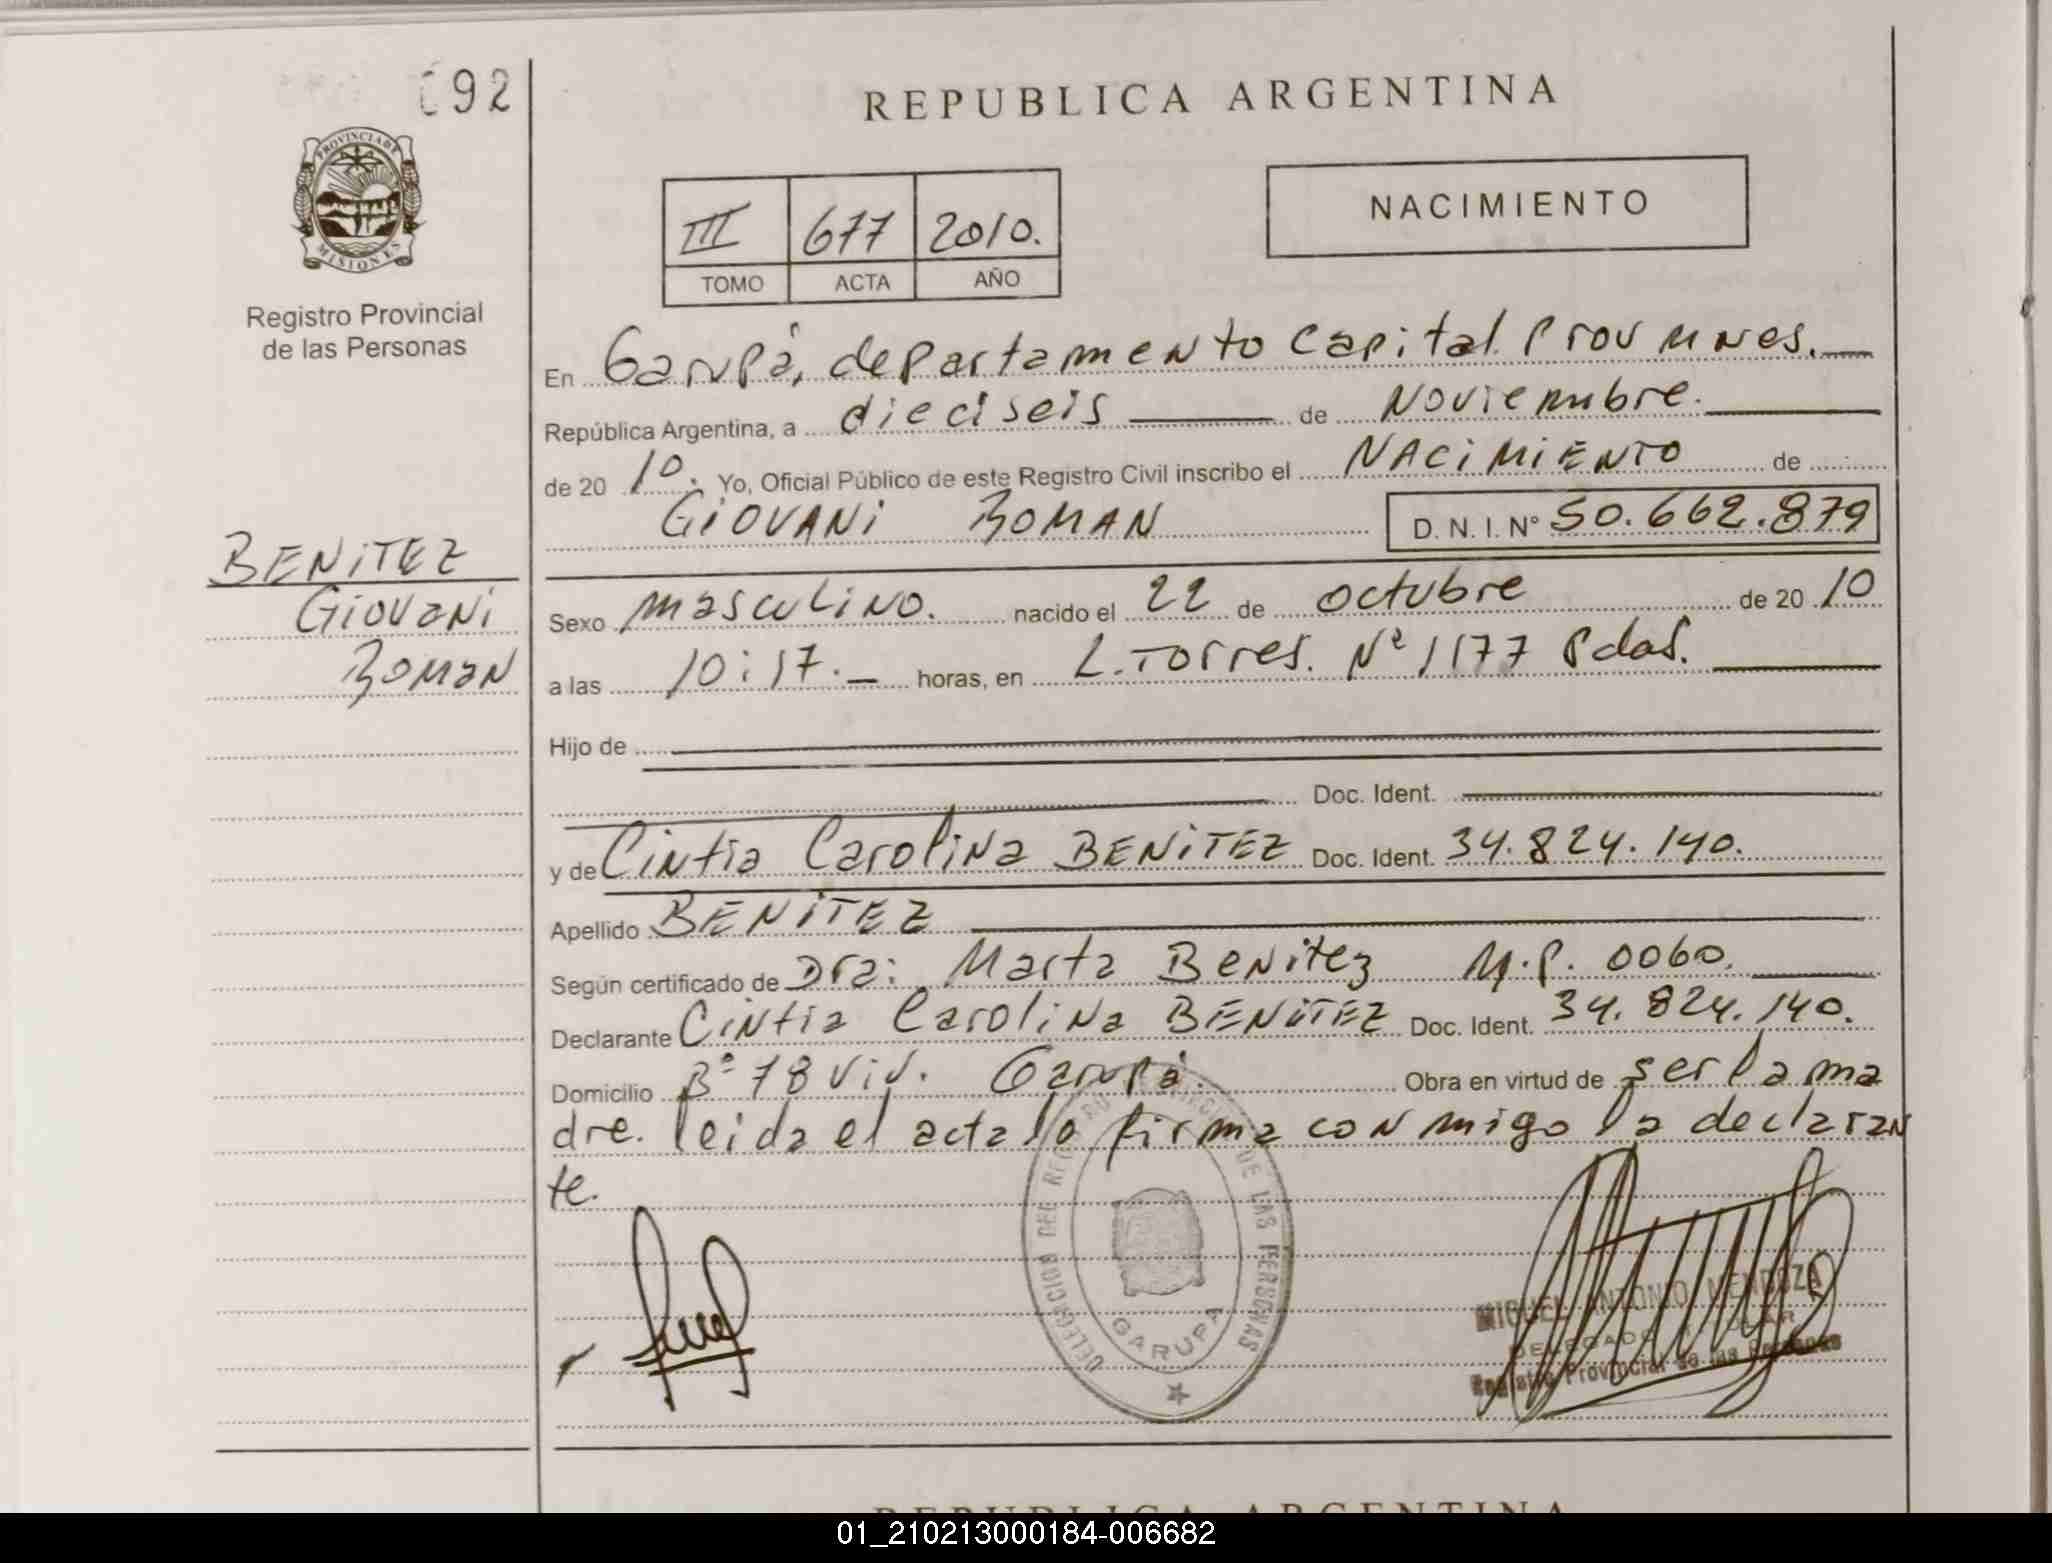 092
PROVINCIA DE
MISIONES
Registro Provincial
de las Personas
BENITEZ
GIOVANI
ROMAN
REPUBLICA ARGENTINA
III 677 2010.
TOMO ACTA AÑO
NACIMIENTO
En Garupá, departamento Capital. Prov Mnes.
República Argentina, a dieciseis de Noviembre.
de 20 10. Yo, Oficial Público de este Registro Civil inscribo el NACIMIENTO de
GIOVANI ROMAN D. N. I. Nº 50.662.879
Sexo masculino. nacido el 22 de octubre de 20 10
a las 10:17. horas, en L. Torres. Nº 1177 Pdas.
Hijo de
Doc. Ident.
y de Cintia Carolina BENITEZ Doc. Ident. 34.824.140.
Apellido BENITEZ
Según certificado de Dra: Marta Benitez M.P. 0060.
Declarante Cintia Carolina BENITEZ Doc. Ident. 34.824.140.
Domicilio Bº 78 Viv. Garupá. Obra en virtud de ser la ma
dre. leida el acta lo firma conmigo la declaran
te.
DELEGACION DEL REGISTRO PROVINCIAL DE LAS PERSONAS
GARUPA
MIGUEL ANTONIO MENDOZA
DELEGADO TITULAR
Registro Provincial de las Personas
REPUBLICA ARGENTINA
01_210213000184-006682